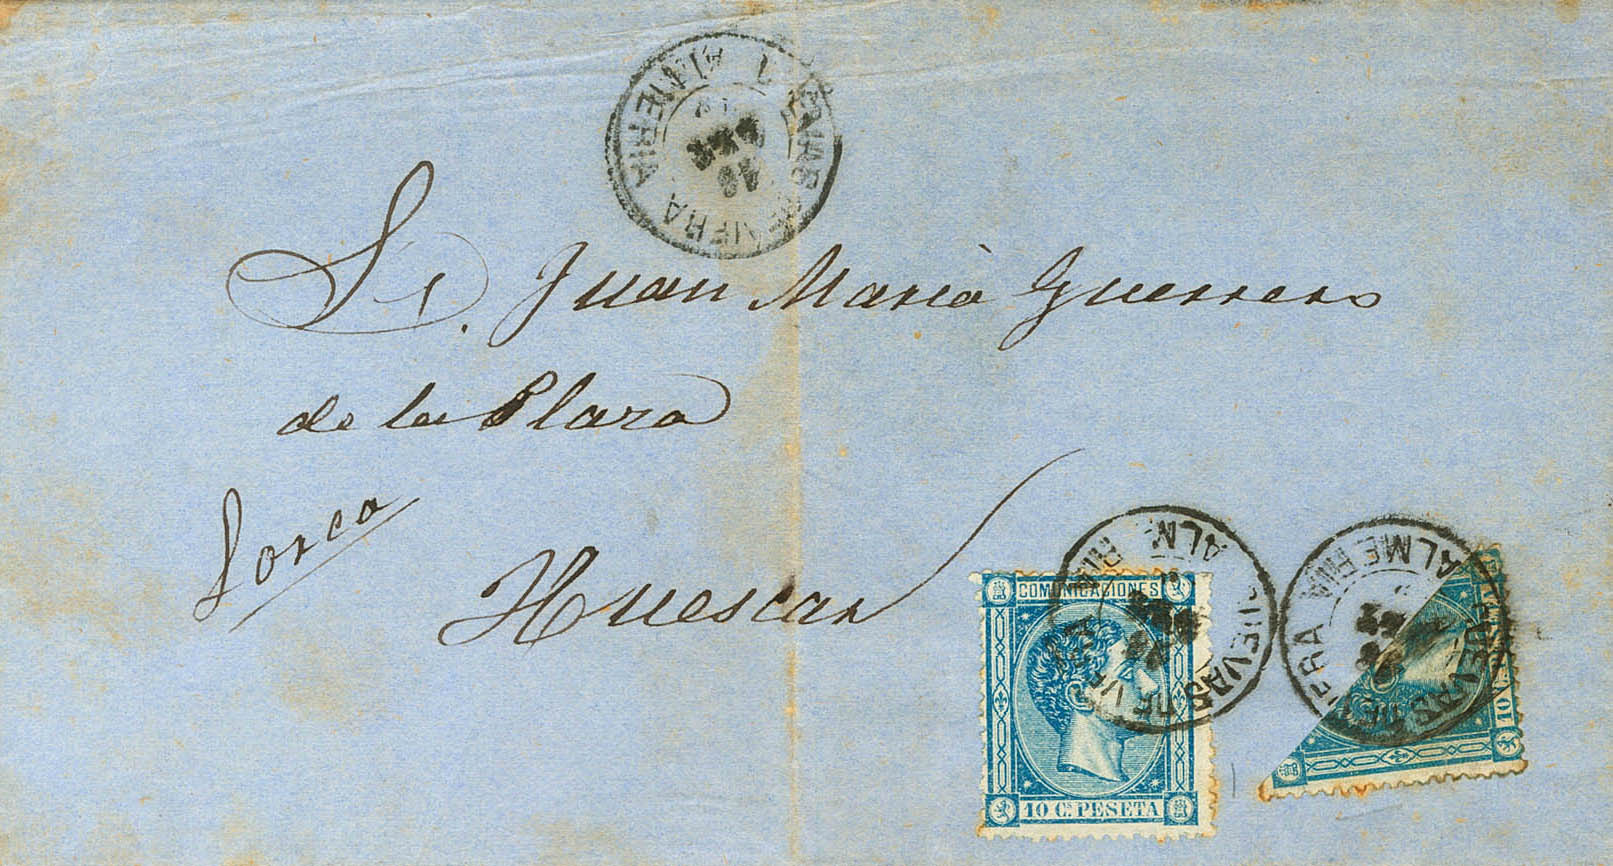 CUEVAS DE VERA
ALMERIA
Sr. Juan Maria Guerrero
de la Plaza
Lorca
Huescar
COMUNICACIONES
10 C. PESETA
CUEVAS DE VERA
ALMERIA
CUEVAS DE VERA
ALMERIA
10 C. PESETA